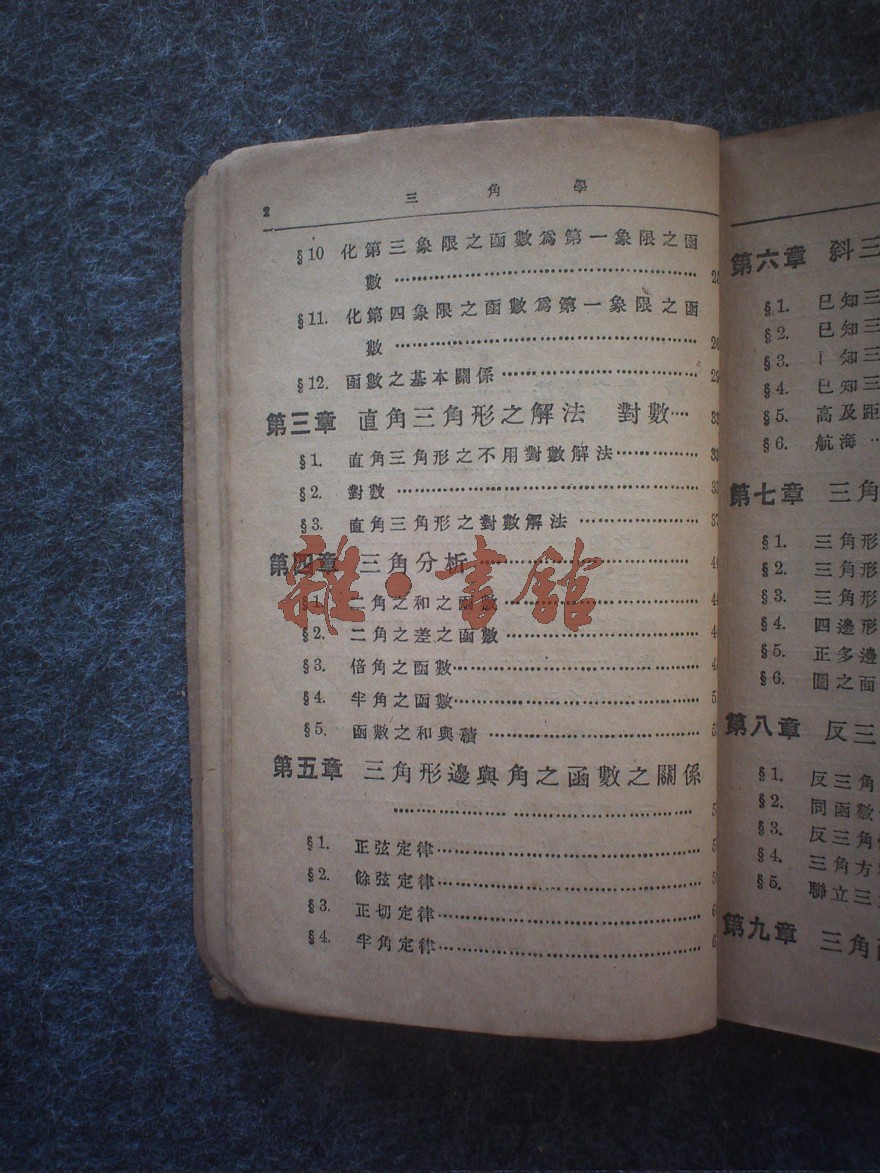 2 三角學
§10 化第三象限之函數爲第一象限之函
數
§11. 化第四象限之函數爲第一象限之函
數
§12. 函數之基本關係
第三章 直角三角形之解法 對數
§1. 直角三角形之不用對數解法
§2. 對數
§3. 直角三角形之對數解法
第四章 三角分析
§1. 二角之和之函數
§2. 二角之差之函數
§3. 倍角之函數
§4. 半角之函數
§5. 函數之和與積
第五章 三角形邊與角之函數之關係
§1. 正弦定律
§2. 餘弦定律
§3. 正切定律
§4. 半角定律
雜·書館
第六章 斜三
§1. 已知三
§2. 已知三
§3. 已知三
§4. 已知三
§5. 高及距
§6. 航海
第七章 三角
§1. 三角形
§2. 三角形
§3. 三角形
§4. 四邊形
§5. 正多邊
§6. 圓之面
第八章 反三
§1. 反三角
§2. 同函數
§3. 反三角
§4. 三角方
§5. 聯立三
第九章 三角